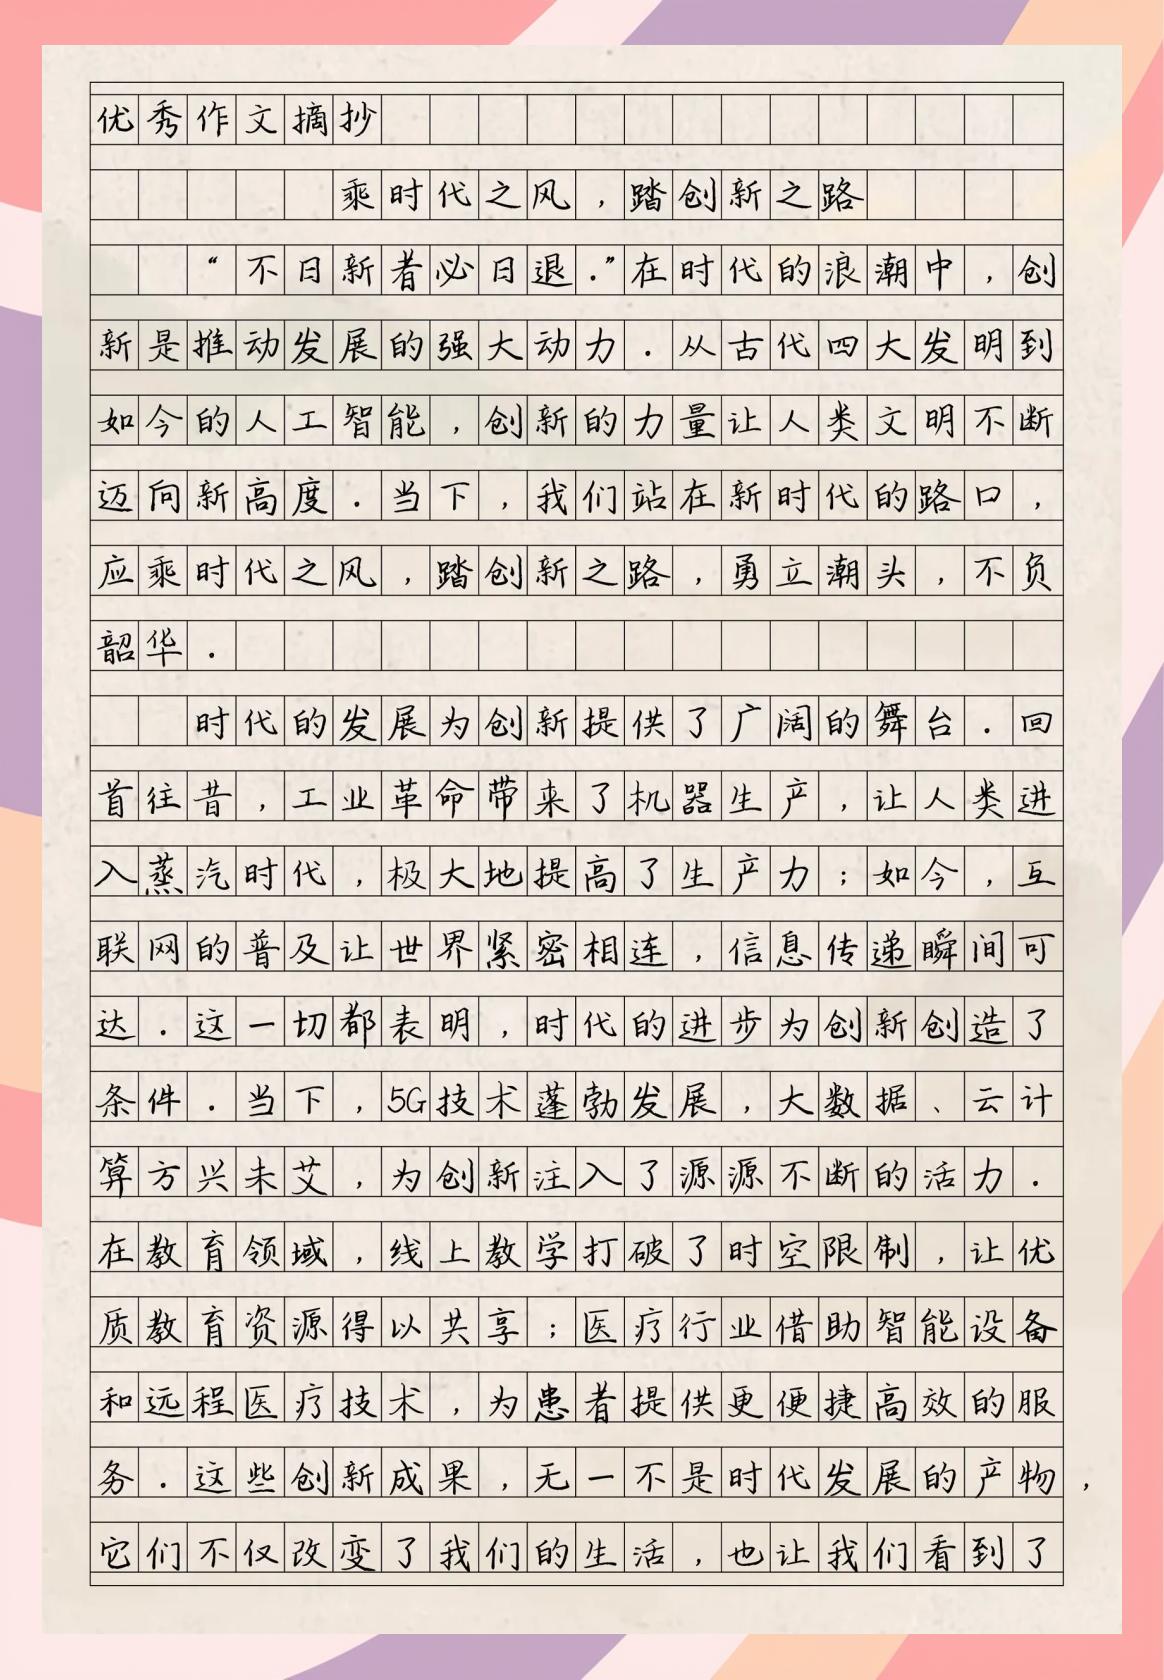 优秀作文摘抄
乘时代之风，踏创新之路
“不日新者必日退.”在时代的浪潮中，创
新是推动发展的强大动力.从古代四大发明到
如今的人工智能，创新的力量让人类文明不断
迈向新高度.当下，我们站在新时代的路口，
应乘时代之风，踏创新之路，勇立潮头，不负
韶华.
时代的发展为创新提供了广阔的舞台.回
首往昔，工业革命带来了机器生产，让人类进
入蒸汽时代，极大地提高了生产力；如今，互
联网的普及让世界紧密相连，信息传递瞬间可
达.这一切都表明，时代的进步为创新创造了
条件.当下，5G技术蓬勃发展，大数据、云计
算方兴未艾，为创新注入了源源不断的活力.
在教育领域，线上教学打破了时空限制，让优
质教育资源得以共享；医疗行业借助智能设备
和远程医疗技术，为患者提供更便捷高效的服
务.这些创新成果，无一不是时代发展的产物，
它们不仅改变了我们的生活，也让我们看到了